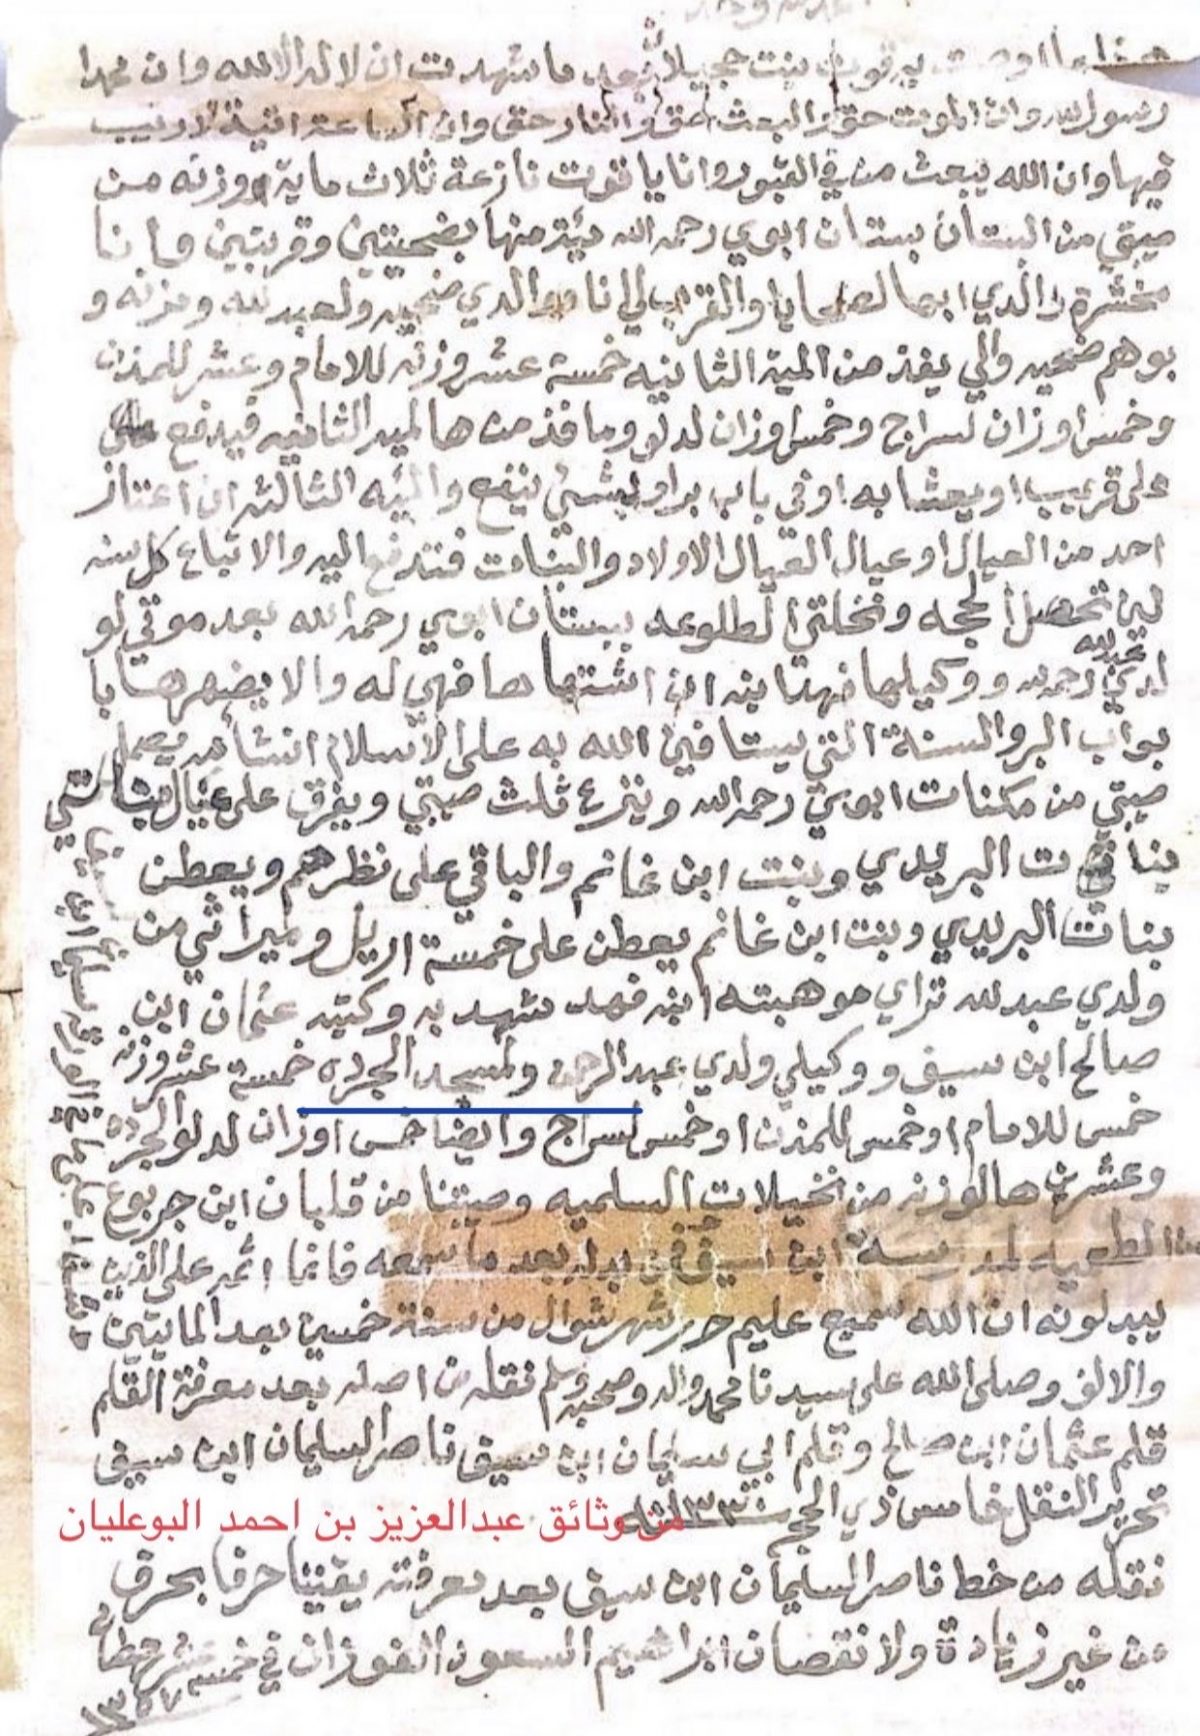 هذا ما اوصت به قوت بنت حجيلان بعد ما شهدت ان لا اله الا الله وان محمدا
رسول الله وان الموت حق والبعث حق والنار حق وان الساعة اتية لا ريب
فيها وان الله يبعث من في القبور وانا يا قوت نازعة ثلاث ماية وزنه من
صيبتي من البستان بستان ابوي رحمه الله مية منها بضحيتين وقربتين وانا
مخشرة والدي ابها لضحايا والقرب لي انا ووالدي ضحيه ولعبدلله ومزنه و
بوهم ضحيه والي يفذ من المية الثانيه خمسة عشر وزنه للامام وعشر للمذن
وخمس اوزان لسراج وخمس اوزان لدلو وما فذ من هالميه الثانيه فيدفع على
على قريب او يعشا به او في باب بر او بشي ينفع والميه الثالثه ان اعتاز
احد من العيال او عيال العيال الاولاد والبنات فتدفع اليه والا تباع كل سنه
لين تحصل الحجه ونخلتي المطلوعه ببستان ابوي رحمه الله بعد موتي لو
لدي عبدلله رحمه الله ووكيلها فهد ابنه ان اشتهاها فهي له والا يضهرها با
بواب البر والسنة التي يستافين الله به على الاسلام انشا الله
صيبتي من مكنات ابوي رحمه الله وينزع ثلث صيبتي ويفرق على عيال
بنات البريدي وبنت ابن غانم والباقي على نظرهم ويعطن
بنات البريدي وبنت ابن غانم يعطن على خمسة اريل وميراثي من
ولدي عبدلله تراي موهبته ابنه فهد شهد به وكتبه عثمان ابن
صالح ابن سيف ووكيلي ولدي عبدالرحمن ولمسجد الجرده خمسة عشر وزنه
خمس للامام او خمس للمذن او خمس لسراج وايضا خمس اوزان لدلو الجرده
وعشرين هالوزنه من نخيلات السلميه وصيتنا من قلبان ابن جربوع
ابن سيف فمن بدله بعد ما سمعه فانما اثمه على الذين
يبدلونه ان الله سميع عليم حرر شهر شوال من سنة خمسين بعد المايتين
والالف وصلى الله على سيدنا محمد واله وصحبه وسلم نقله من اصله بعد معرفة القلم
قلم عثمان ابن صالح وقلم ابي سليمان ابن سيف ناصر السليمان ابن سيف
تحرير النقل خامس ذي الحجه
من وثائق عبدالعزيز بن احمد البوعليان
نقله من خط ناصر السليمان ابن سيف بعد معرفته يقينيا حرفا بحرف
من غير زيادة ولا نقصان ابراهيم السعود الفوزان في خمسة عشر
١٣٥٧